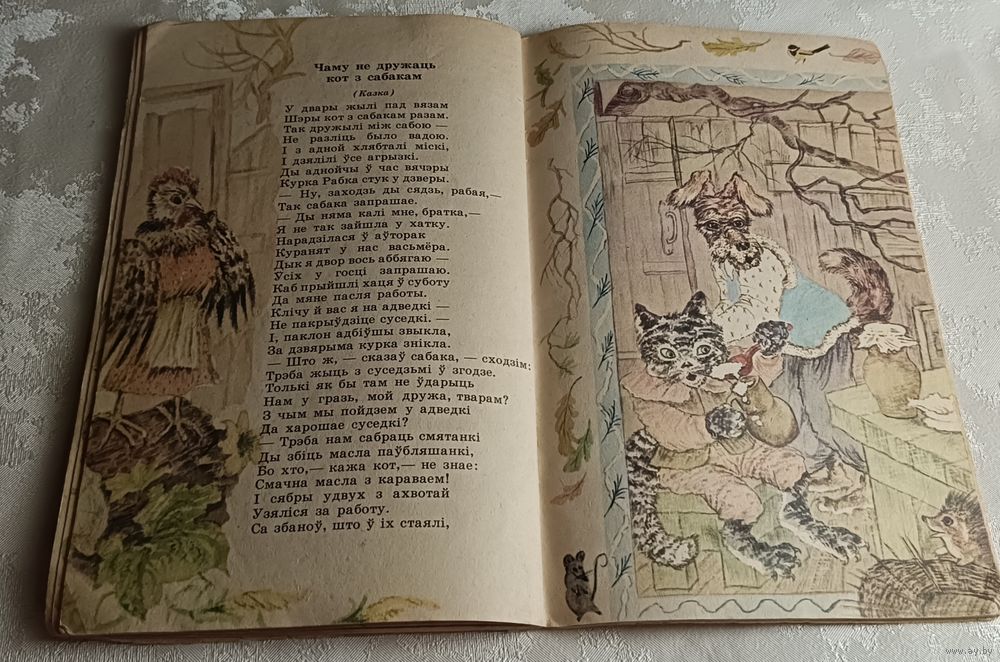 Чаму не дружаць
кот з сабакам
(Казка)
У двары жылі пад вязам
Шэры кот з сабакам разам.
Так дружылі між сабою —
Не разліць было вадою.
І з адной хлябталі міскі,
І дзялілі ўсе агрызкі.
Ды аднойчы ў час вячэры
Курка Рабка стук у дзверы.
— Ну, заходзь ды сядзь, рабая,—
Так сабака запрашае.
— Ды няма калі мне, братка,—
Я не так зайшла у хатку.
Нарадзілася ў аўторак
Куранят у нас васьмёра.
Дык я двор вось аббягаю —
Усіх у госці запрашаю.
Каб прыйшлі хаця ў суботу
Да мяне пасля работы.
Клічу й вас я на адведкі —
Не пакрыўдзіце суседкі. —
І, паклон адбіўшы звыкла,
За дзвярыма курка знікла.
— Што ж, — сказаў сабака, — сходзім:
Трэба жыць з суседзьмі ў згодзе.
Толькі як бы там не ўдарыць
Нам у гразь, мой дружа, тварам?
З чым мы пойдзем у адведкі
Да харошае суседкі?
— Трэба нам сабраць смятанкі
Ды збіць масла паўбляшанкі,
Бо хто,— кажа кот,— не знае:
Смачна масла з караваем!
І сябры удвух з ахвотай
Узяліся за работу.
Са збаноў, што ў іх стаялі,
www.ay.by